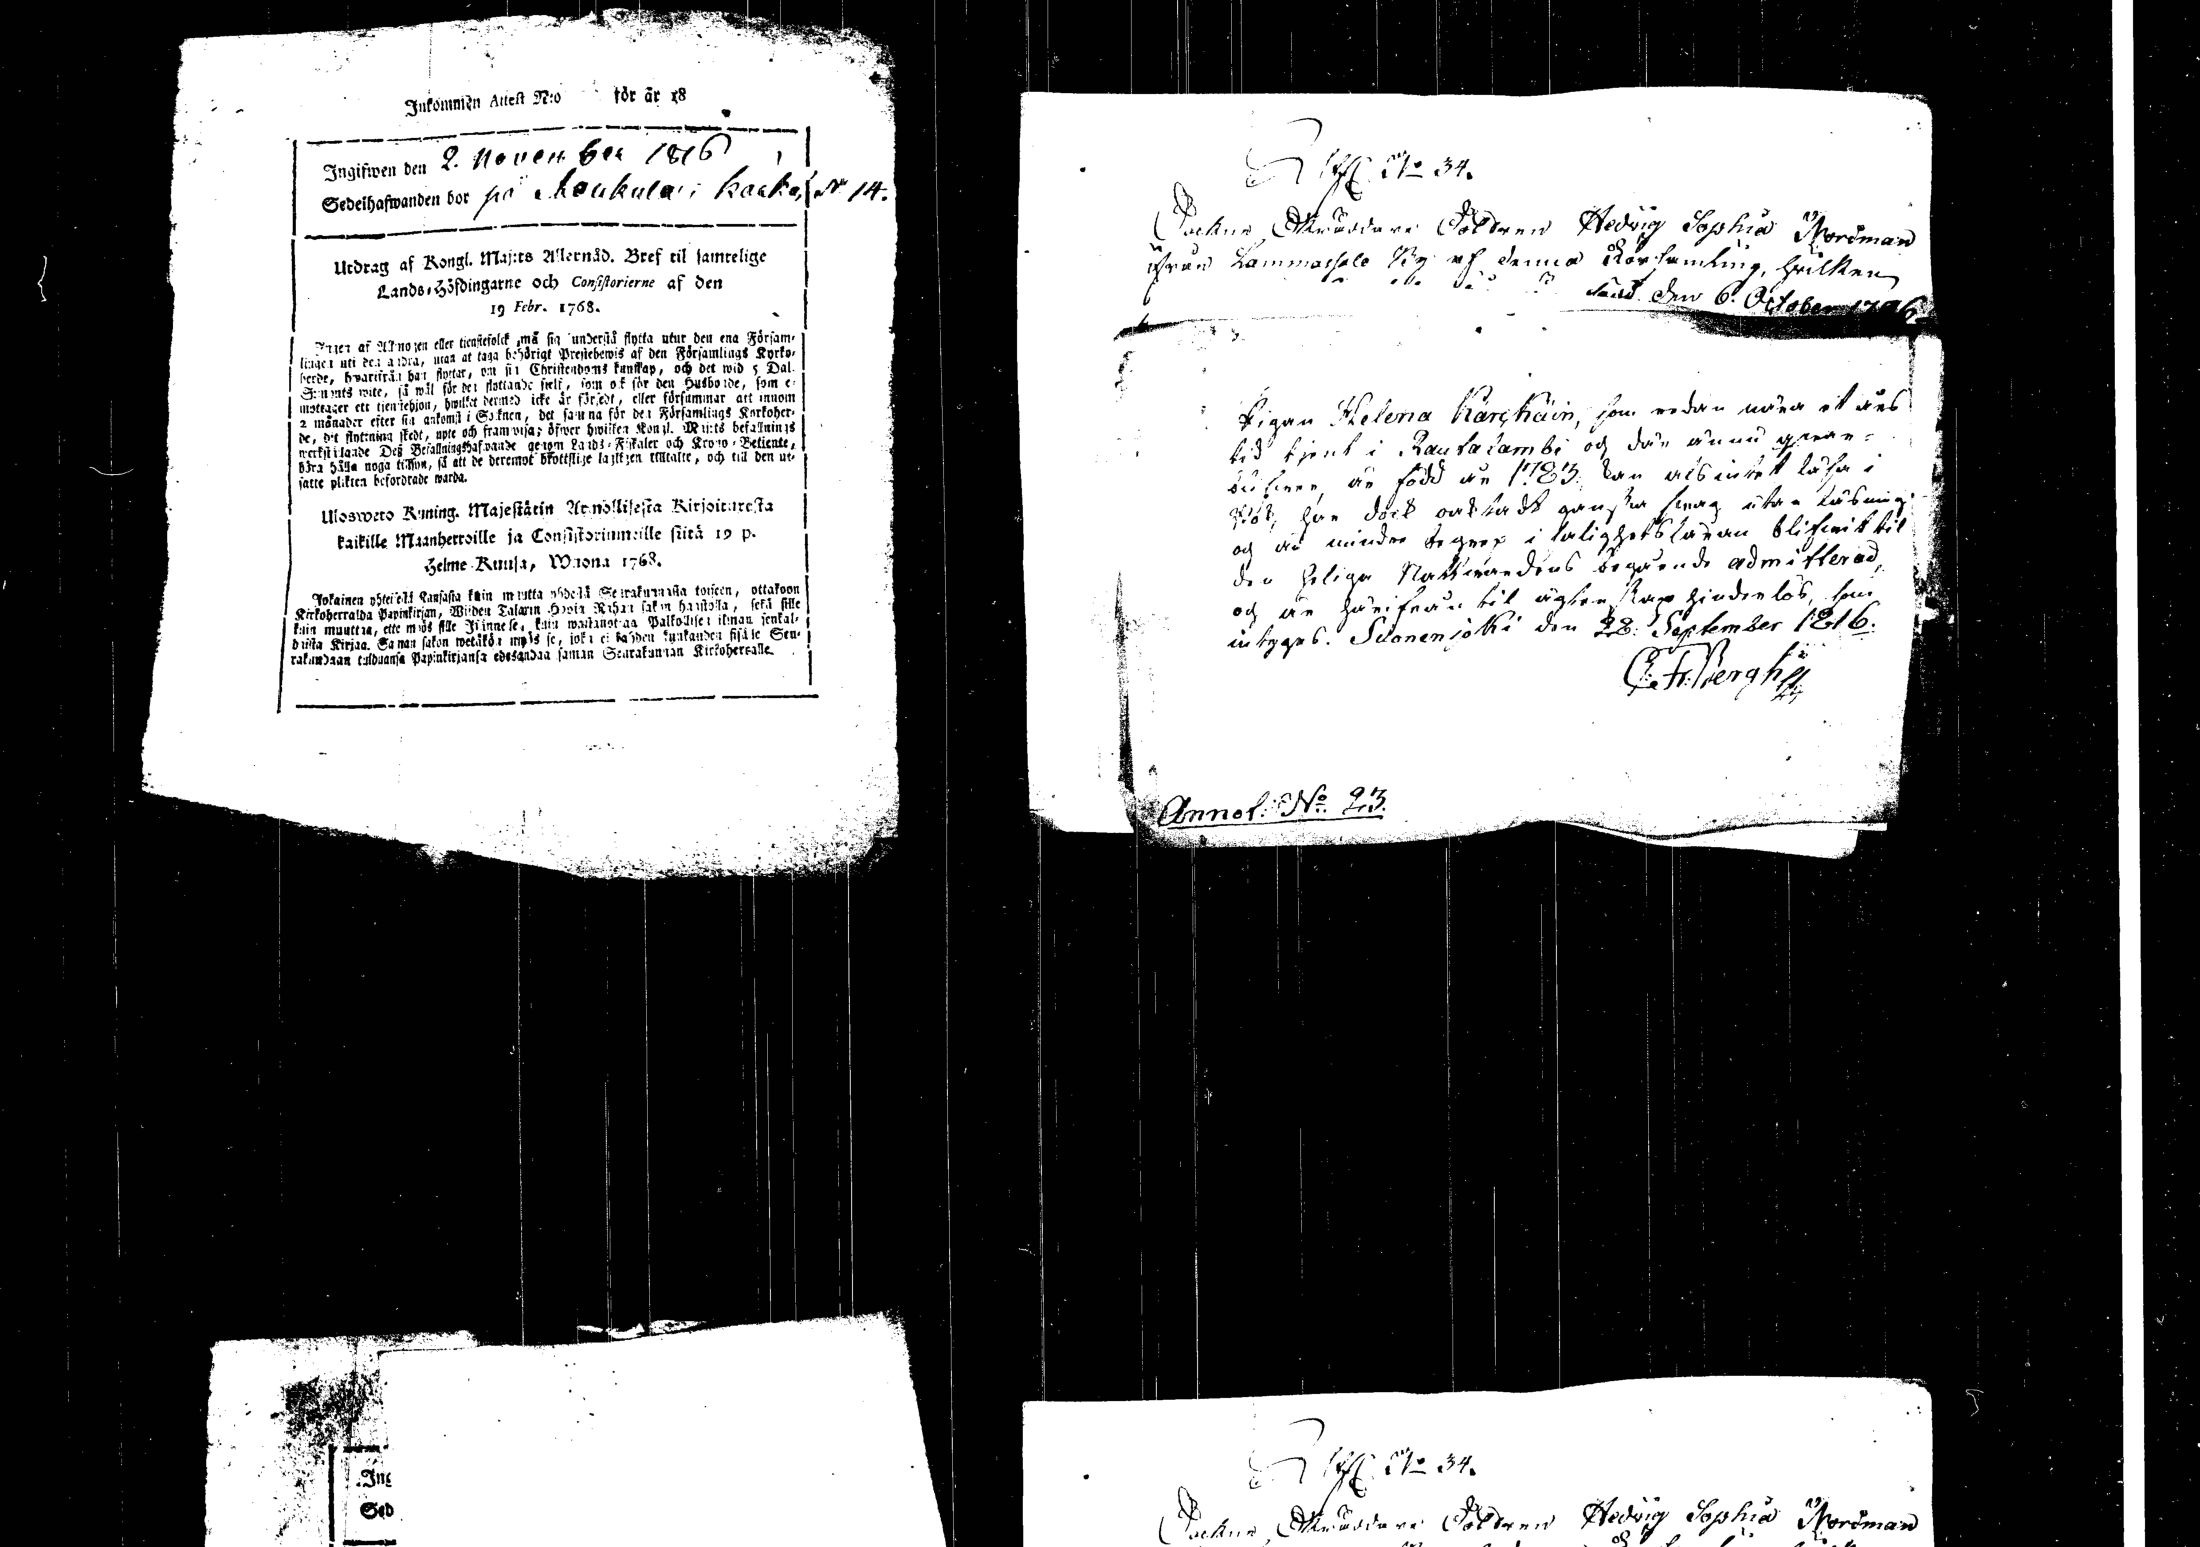 Inkommen Attest N:o för år 18
Ingifwen den 2. November 1816
Sedelhafwanden bor på Koukela i Karka, N:o 14.
Utdrag af Kongl. Maj:ts Allernåd. Bref til samtelige
Lands-Höfdingarne och Consistorierne af den
19 Febr. 1768.
Ingen af Allmogen eller tienstefolck må sig understå flytta utur den ena Försam-
lingen uti den andra, utan at taga behörigt Prestebewis af den Församlings Kyrko-
herde, hwarifrån han flyttar, om sin Christendoms kunskap, och det wid 5 Dal.
S:mynts wite, så wäl för den flyttande sielf, som ock för den Husbonde, som e-
mottager ett tienstehjon, hwilket dermed icke är försedt, eller försummar att innom
2 månader efter sin ankomst i Soknen, det samma för den Församlings Kyrkoher-
de, dit flyttning skedt, upte och framwisa; öfwer hwilken Kongl. Maj:ts befallnings
werkställande Deß Befallningshafwande genom Lands-Fiskaler och Krono-Betiente,
böra hålla noga tilsyn, så att de deremot brottslige lagligen tilltalte, och till den ut-
satte plikten befordrade warda.
Ulosweto Kuning. Majestätin Armollisesta Kirjoituresta
kaikille Maanherroille ja Consistoriumeille siitä 19 p.
Helme-Kuusa, Wuona 1768.
Jokainen yhteisestä kansasta kuin muutta yhdestä Seurakunnasta toiseen, ottakoon
Kirkoherralda Papinkirjan, Wiiden Talarin Hopia Rahan sakon haastolla, sekä sille
kuin muuttaa, ette myös sille Isännelle, kuin wastanottaa Palkollisen ilman senkal-
duista Kirjaa. Saman sakon wetäkön myös se, joka ei kahden kuukauden sisälle Seu-
rakundaan tulduansa Papinkirjansa edesandaa saman Seurakunnan Kirkoherralle.
N:o 34.
Hedvig Sophia Nordman
Från Lammassalo By af denna Församling, hvilken
den 6. October 1796.
Pigan Helena Kärckäin, som redan nära et års
tid tjent i Rautalambi og där ännu qvar-
blifver, är född år 1783, kan alsintet läsa i
bok, har dock oaktadt ganska svag utan läsning
og än mindre begrep i salighetsläran blifvit til
den heliga Nattvardens begående admitterad,
og är härifrån til ägtenskap hinderlös, som
intygas. Suonenjoki den 28. September 1816.
C. H. Bergh
Annot. No 23.
Ing
Sed
N:o 34.
Hedvig Sophia Nordman